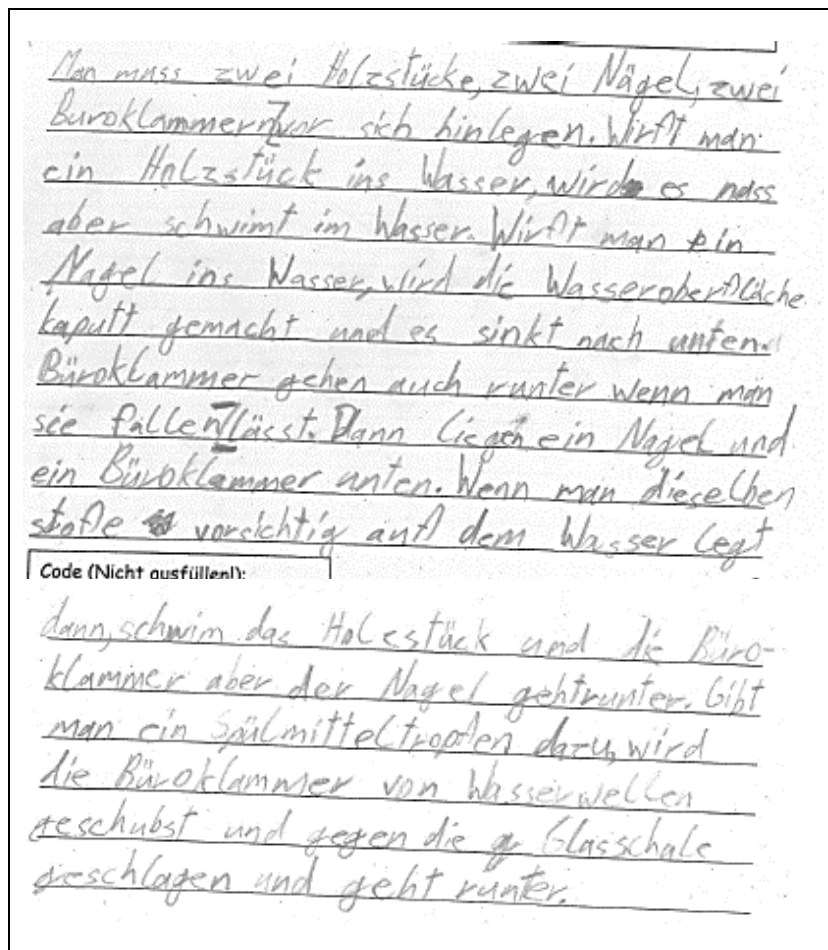 Man muss zwei Holzstücke, zwei Nägel, zwei
Büroklammern vor sich hinlegen. Wirft man
ein Holzstück ins Wasser, wird es nass
aber schwimt im Wasser. Wirft man ein
Nagel ins Wasser, wird die Wasseroberfläche
kaputt gemacht und es sinkt nach unten.
Büroklammer gehen auch runter wenn man
sie fallen lässt. Dann liegen ein Nagel und
ein Büroklammer unten. Wenn man dieselben
stoffe vorsichtig auf dem Wasser legt
Code (Nicht ausfüllen!):
dann, schwim das Holsstück und die Büro-
klammer aber der Nagel geht runter. Gibt
man ein Spülmitteltropfen dazu, wird
die Büroklammer von Wasserwellen
geschubst und gegen die Glasschale
geschlagen und geht runter.